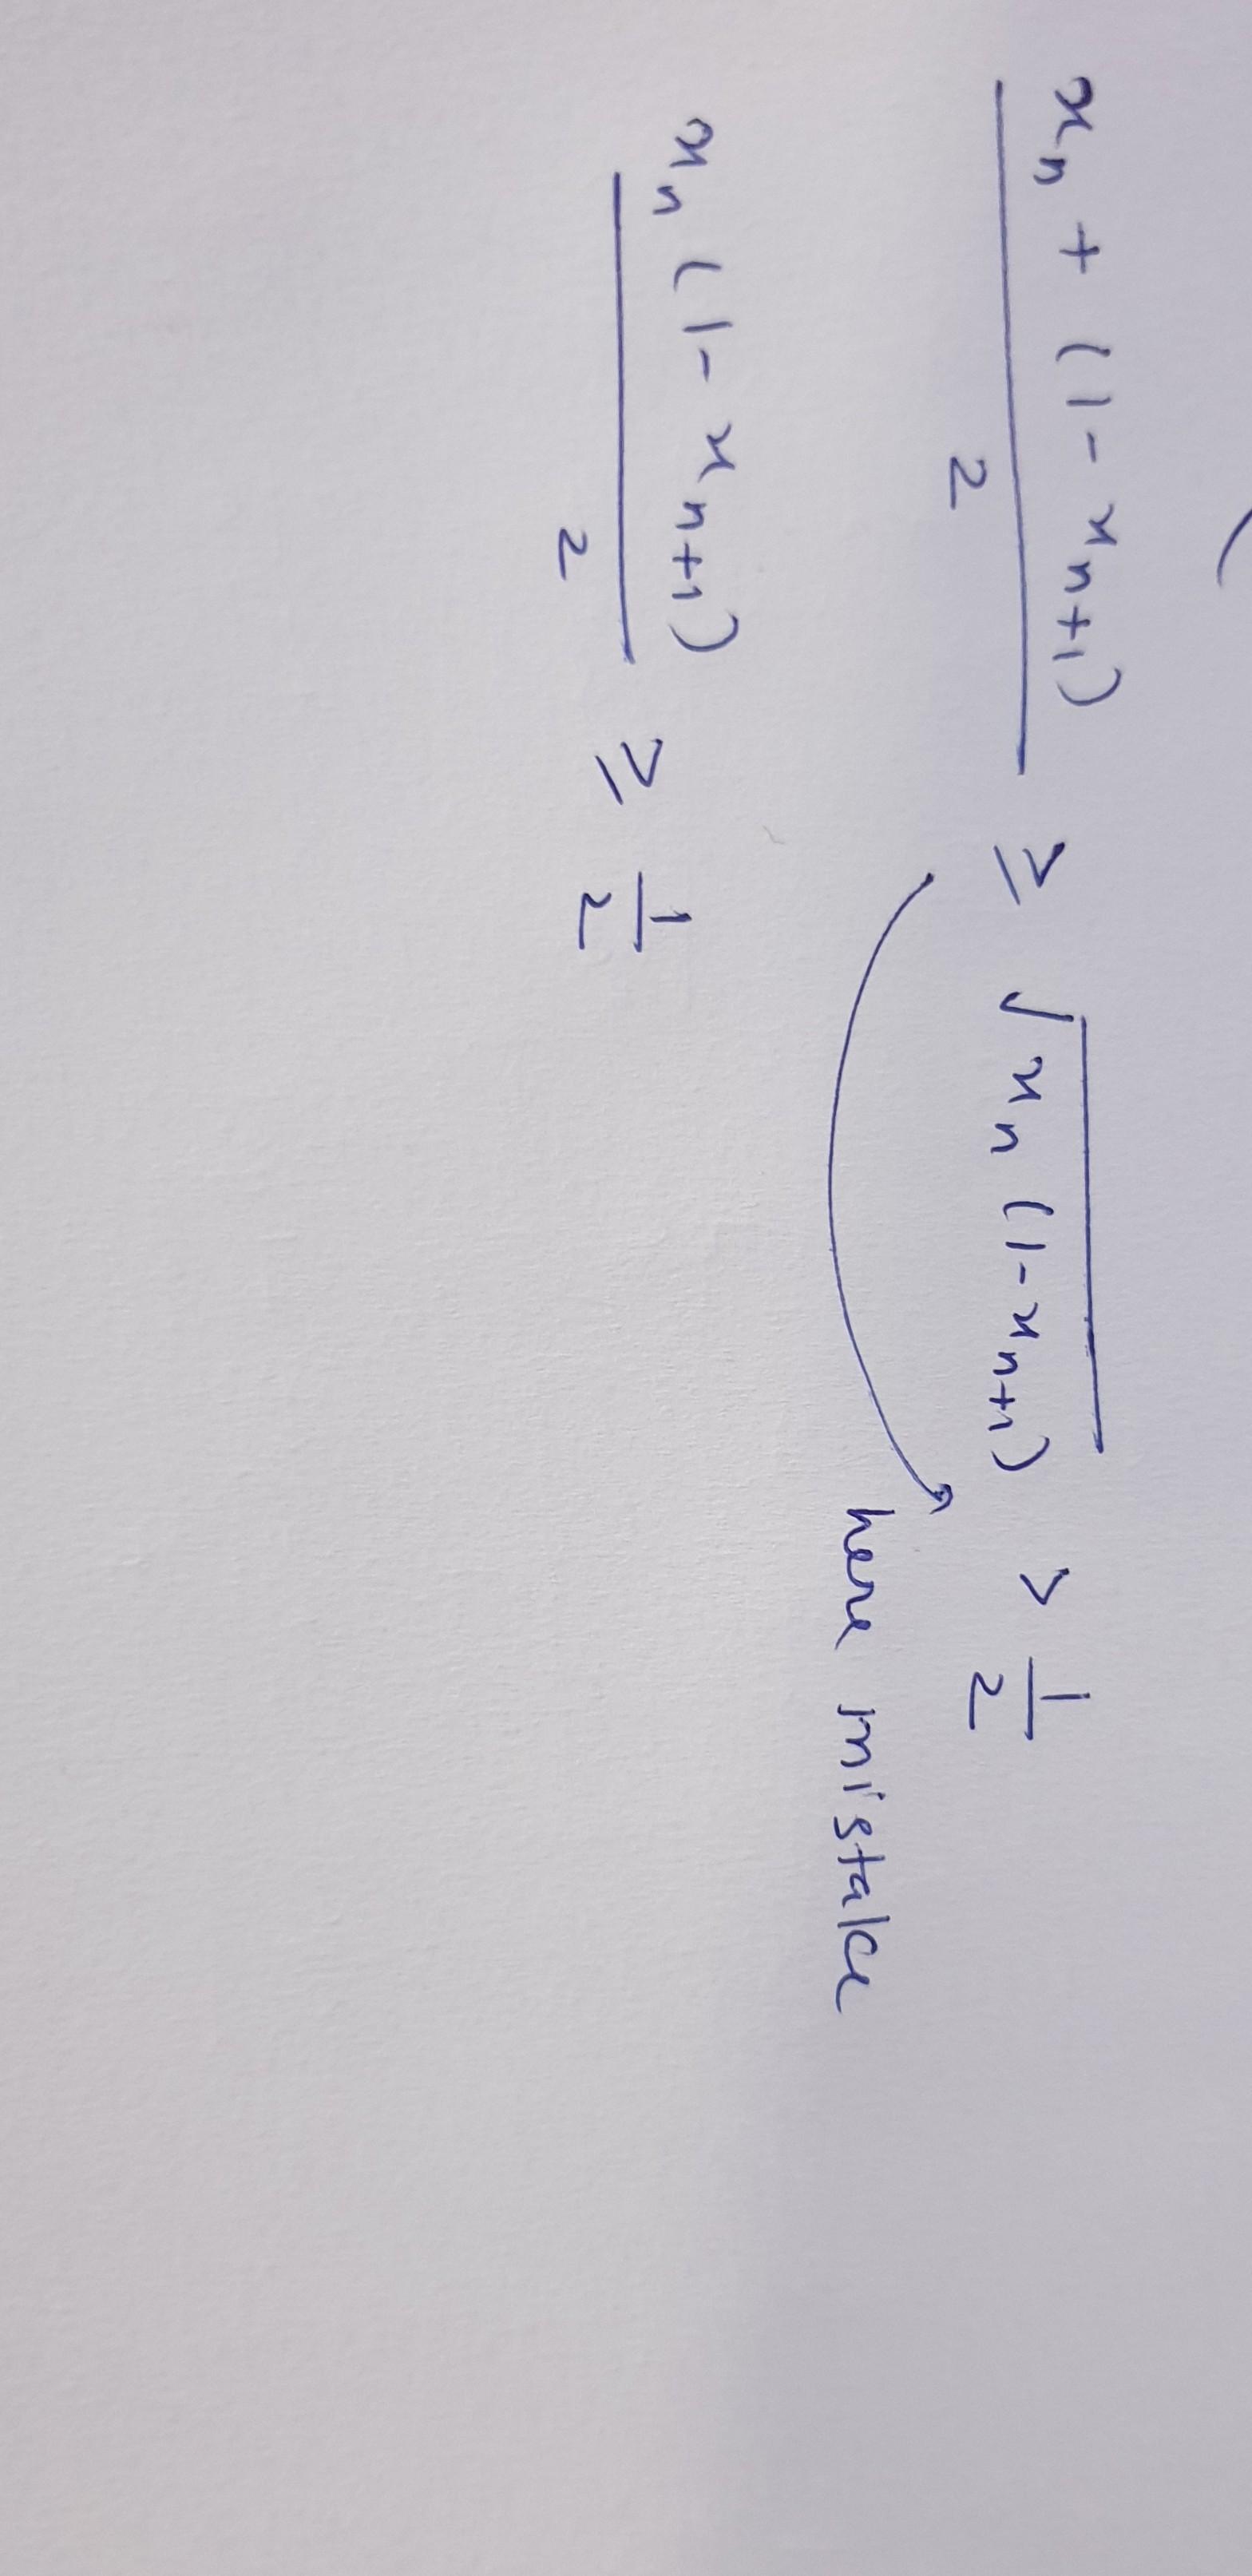 (xₙ + (1 - xₙ₊₁))/2 ≥ √(xₙ (1 - xₙ₊₁)) > 1/2
here mistake
xₙ (1 - xₙ₊₁)/2 ≥ 1/2